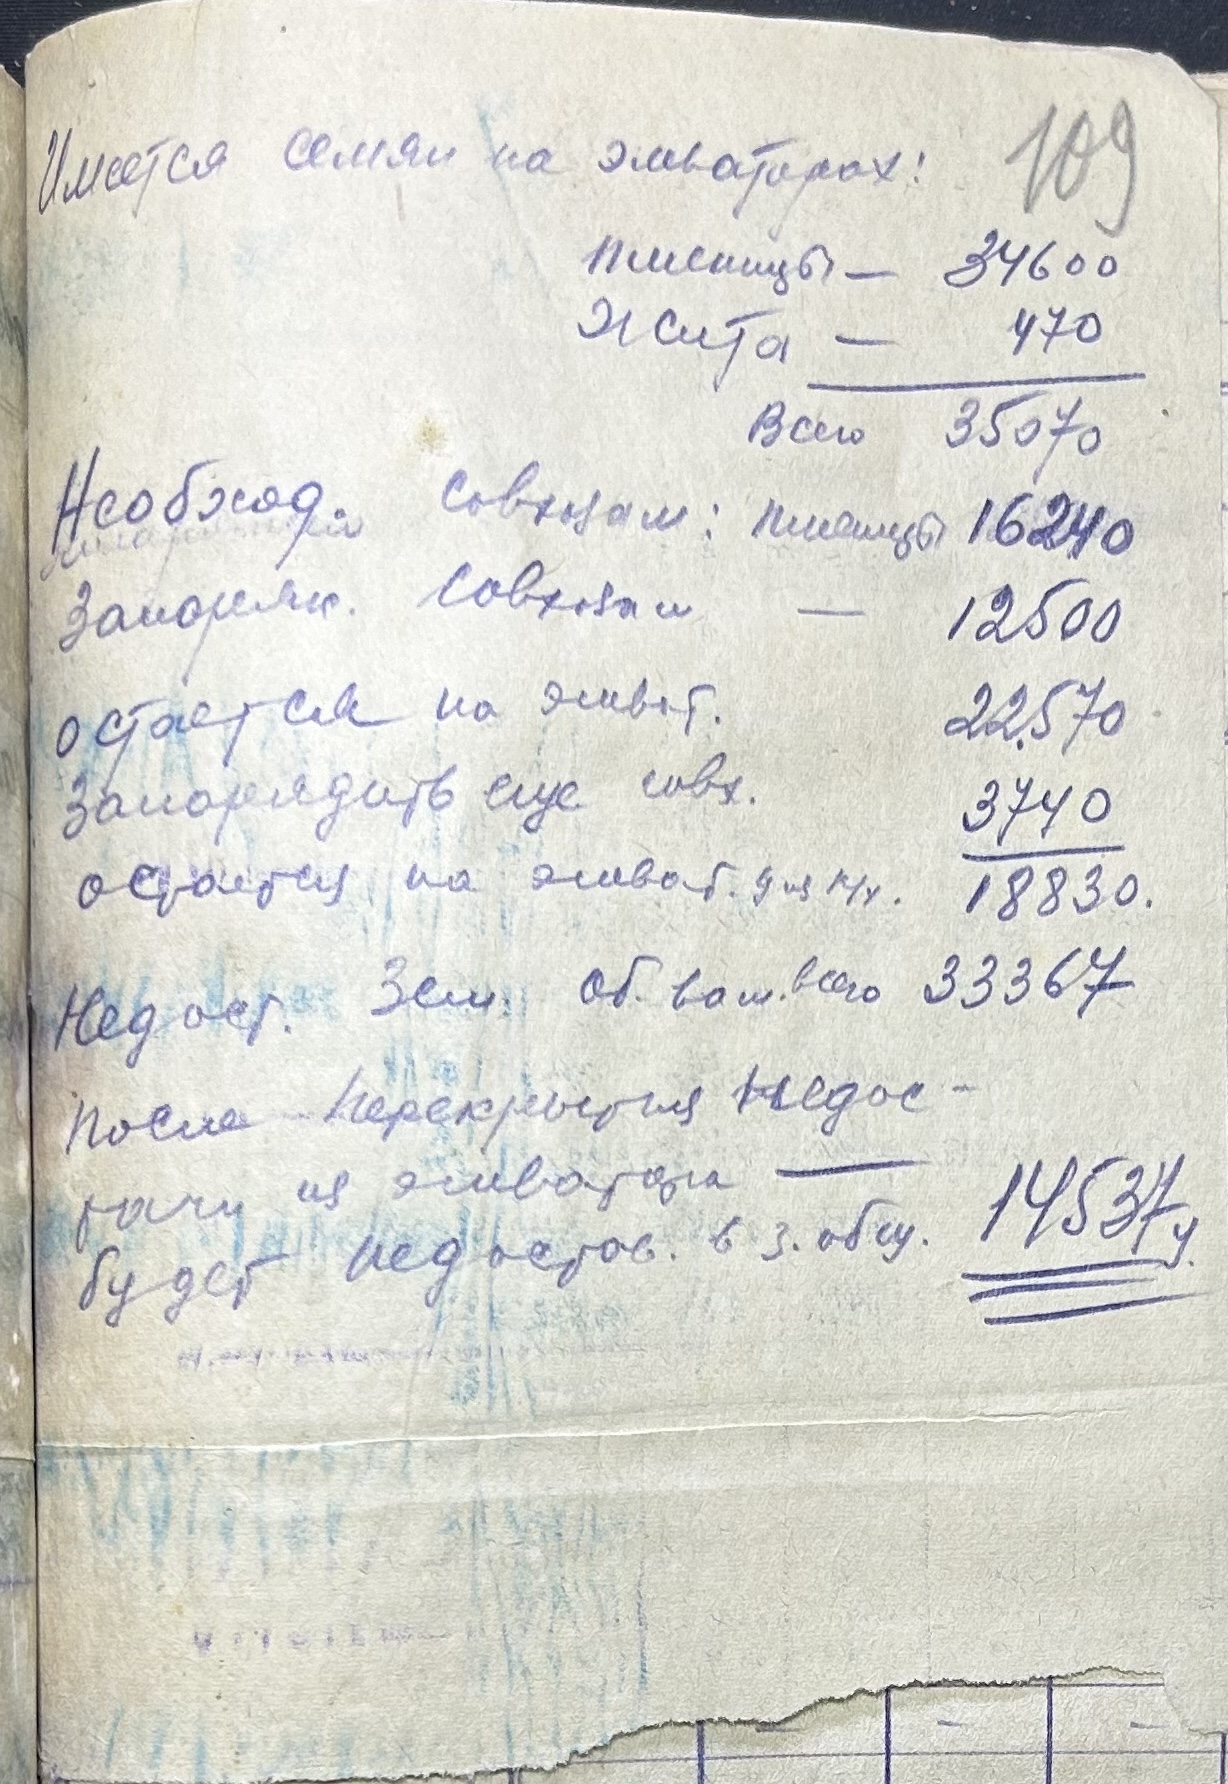 109
Имеется семян на элеваторах:
Пшеницы — 34600
Жита — 470
Всего 35070
Необход. совхозам: пшеницы 16240
Занаряж. совхозам — 12500
остается на элеват. 22570
Занарядить еще совх. 3740
остается на элеват. для к/х. 18830.
Недост. Зем. об. вам. всего 33367
После перекрытия недос-
тачи из элеватора —
будет недостов. в з. общ. 14537ц.